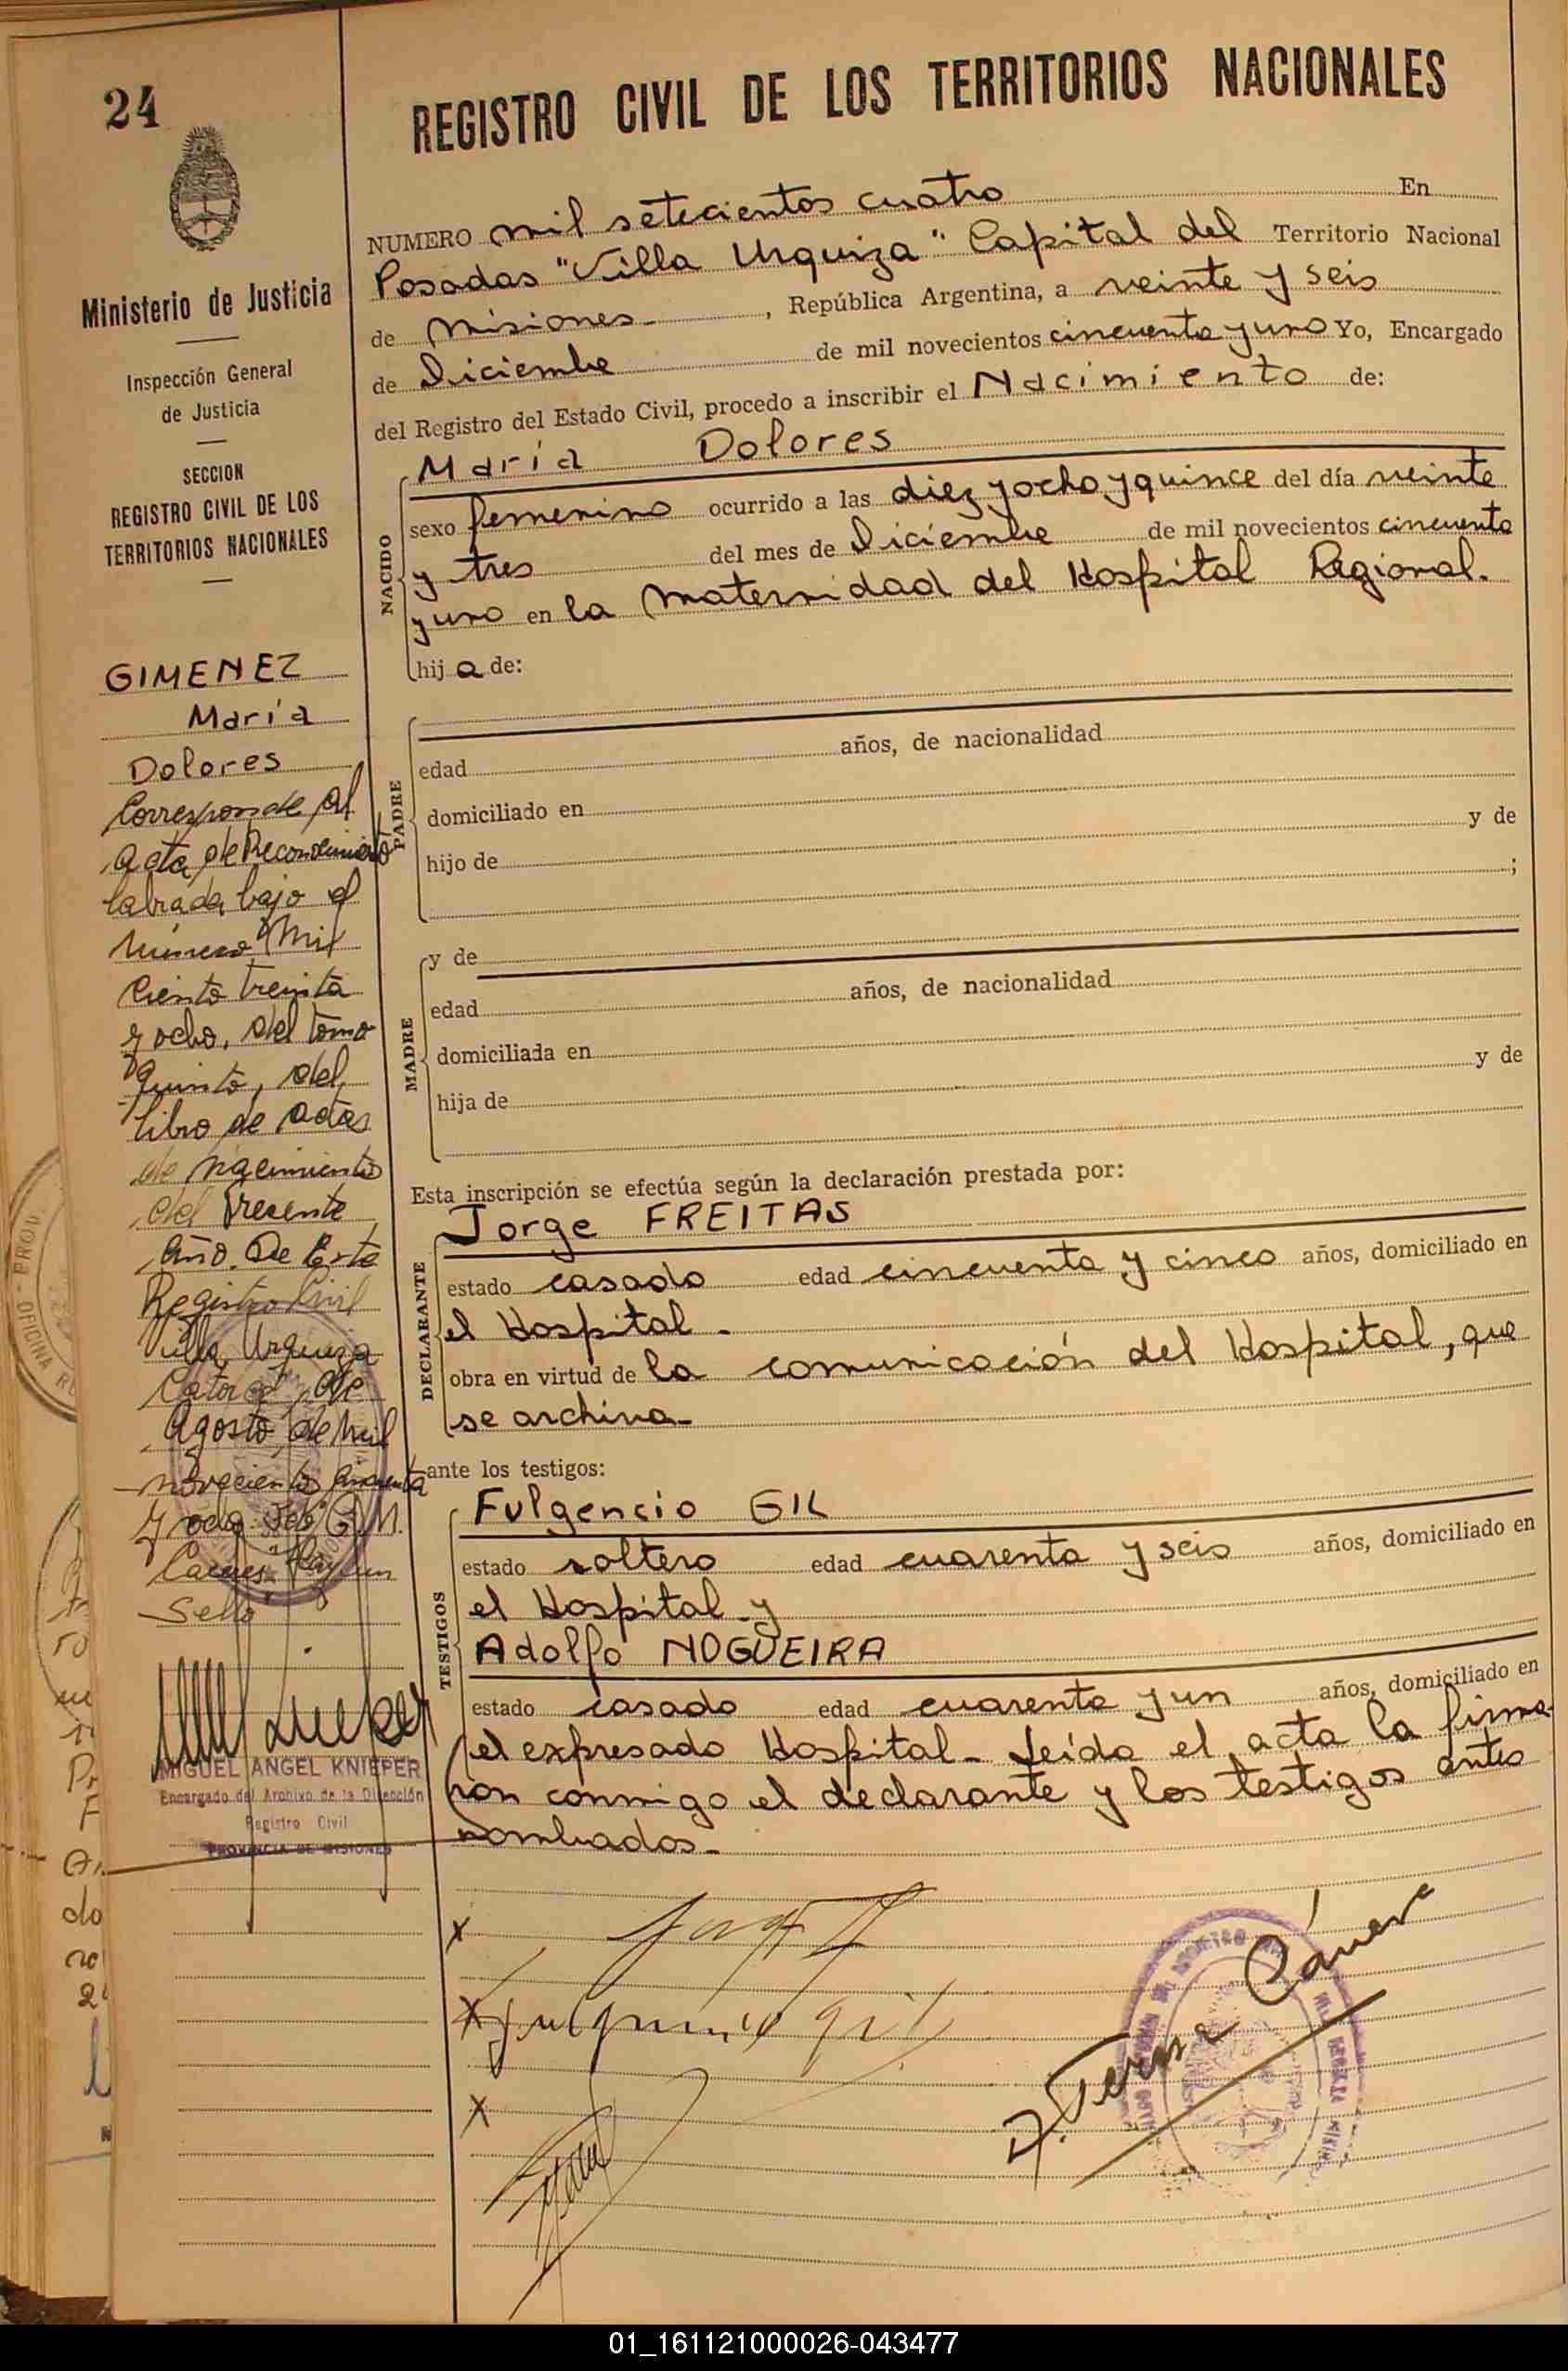 24
REGISTRO CIVIL DE LOS TERRITORIOS NACIONALES
Ministerio de Justicia
Inspección General
de Justicia
SECCION
REGISTRO CIVIL DE LOS
TERRITORIOS NACIONALES
GIMENEZ
María
Dolores
Corresponde al
acta de Reconocimiento
labrada bajo el
número Mil
Ciento treinta
y ocho, del tomo
quinto, del
libro de actas
de nacimientos
del Presente
Año. De Este
Registro Civil
Villa Urquiza
Catorce de
Agosto de mil
novecientos cincuenta
y ocho.
Caceres Hay un
Sello
MIGUEL ANGEL KNIEPER
Encargado del Archivo de la Dirección
Registro Civil
PROVINCIA DE MISIONES
NUMERO mil setecientos cuatro En
Posadas "Villa Urquiza" Capital del Territorio Nacional
de Misiones , República Argentina, a veinte y seis
de Diciembre de mil novecientos cincuenta y uno Yo, Encargado
del Registro del Estado Civil, procedo a inscribir el Nacimiento de:
NACIDO
María Dolores
sexo femenino ocurrido a las diez y ocho y quince del día veinte
y tres del mes de Diciembre de mil novecientos cincuenta
y uno en la maternidad del Hospital Regional.
hij a de:
PADRE
edad años, de nacionalidad
domiciliado en
hijo de y de
;
MADRE
y de
edad años, de nacionalidad
domiciliada en
hija de y de
Esta inscripción se efectúa según la declaración prestada por:
DECLARANTE
Jorge FREITAS
estado casado edad cincuenta y cinco años, domiciliado en
el Hospital -
obra en virtud de la comunicación del Hospital, que
se archiva -
ante los testigos:
TESTIGOS
Fulgencio GIL
estado soltero edad cuarenta y seis años, domiciliado en
el Hospital - y
Adolfo NOGUEIRA
estado casado edad cuarenta y un años, domiciliado en
el expresado Hospital - Leída el acta la firma-
ron conmigo el declarante y los testigos antes
nombrados -
x
x Fulgencio Gil
x
01_161121000026-043477